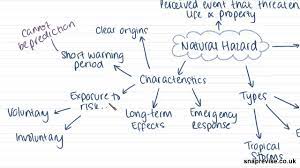 Perceived event that threatens
life & property
Cannot
be prediction
Clear origins
Natural Hazard
Short warning
period
Characteristics
Exposure to
risk...
Types
Voluntary
Long-term
Effects
Emergency
Response
Involuntary
Tropical
Storms
snaprevise.co.uk